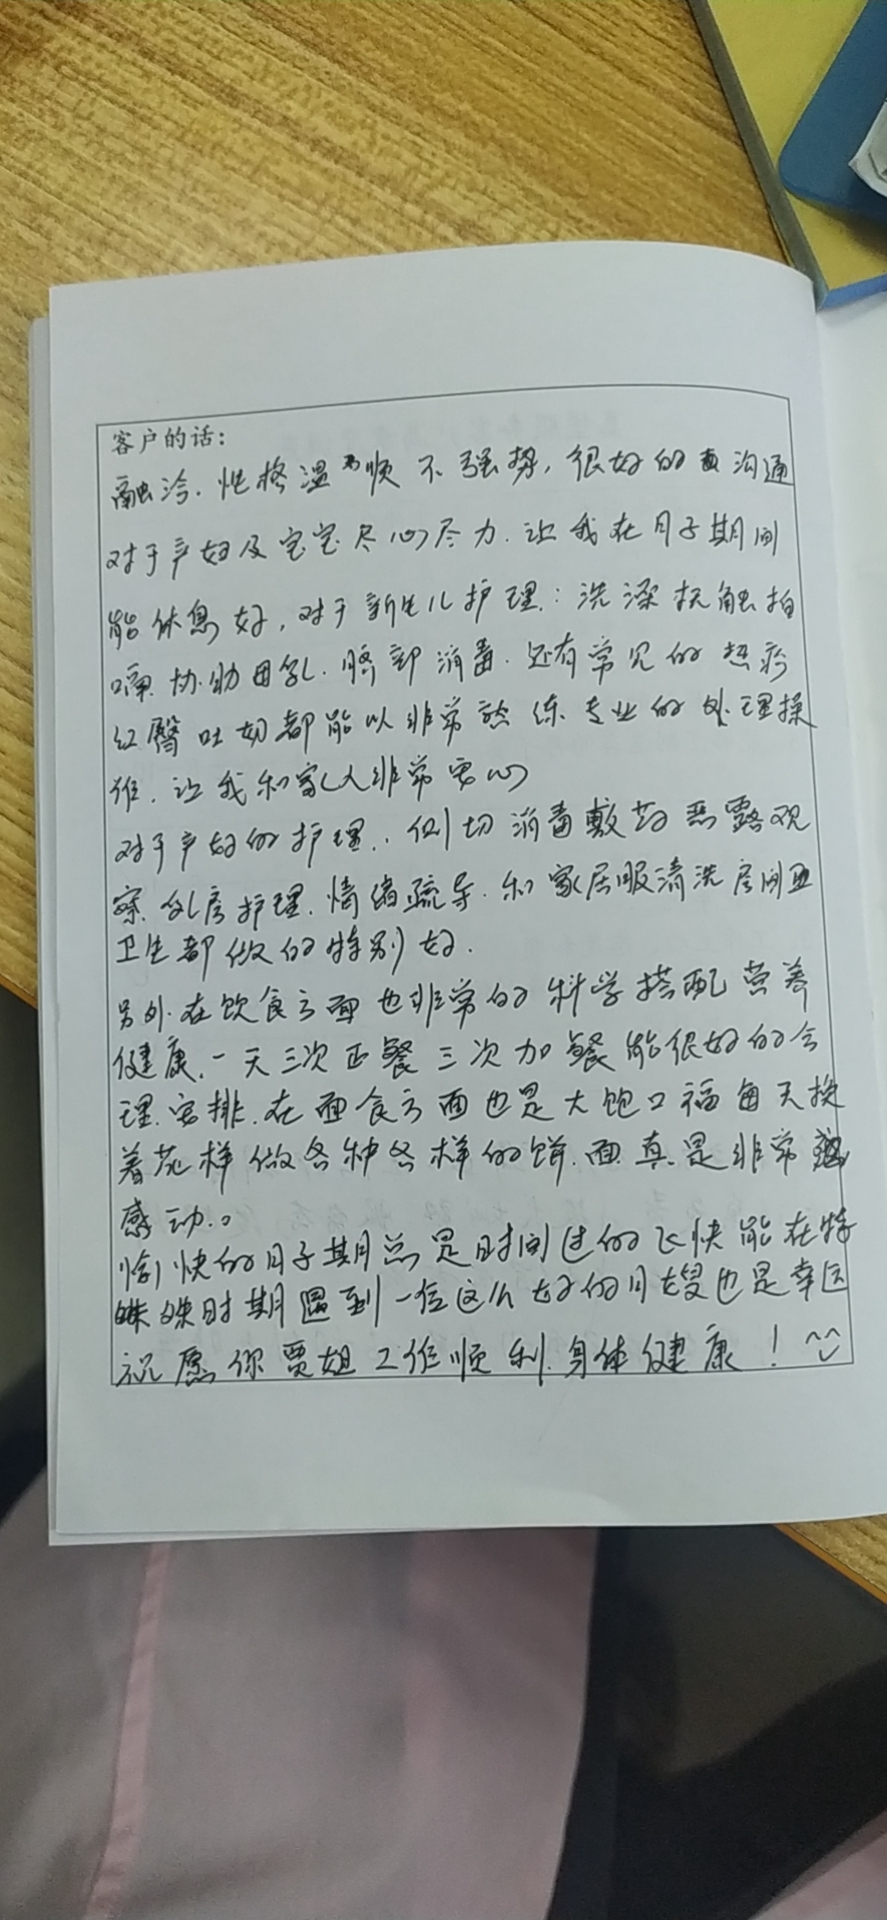 客户的话：
融洽.性格温顺不强势,很好的沟通
对于产妇及宝宝尽心尽力.让我在月子期间
能休息好,对于新生儿护理：洗澡抚触拍
嗝.协助母乳.脐部消毒.还有常见的热疹
红臀吐奶都能以非常熟练专业的处理操
作.让我和家人非常安心
对于产妇的护理..侧切消毒敷药恶露观
察.乳房护理.情绪疏导.和家居服清洗房间卫
卫生都做的特别好.
另外.在饮食方面也非常的科学搭配营养
健康.一天三次正餐三次加餐能很好的合
理.安排.在面食方面也是大饱口福每天换
着花样做各种各样的饼.面真是非常
感动..。
愉快的月子期总是时间过的飞快能在特
殊时期遇到一位这么好的月嫂也是幸运
祝愿你贾姐工作顺利.身体健康！